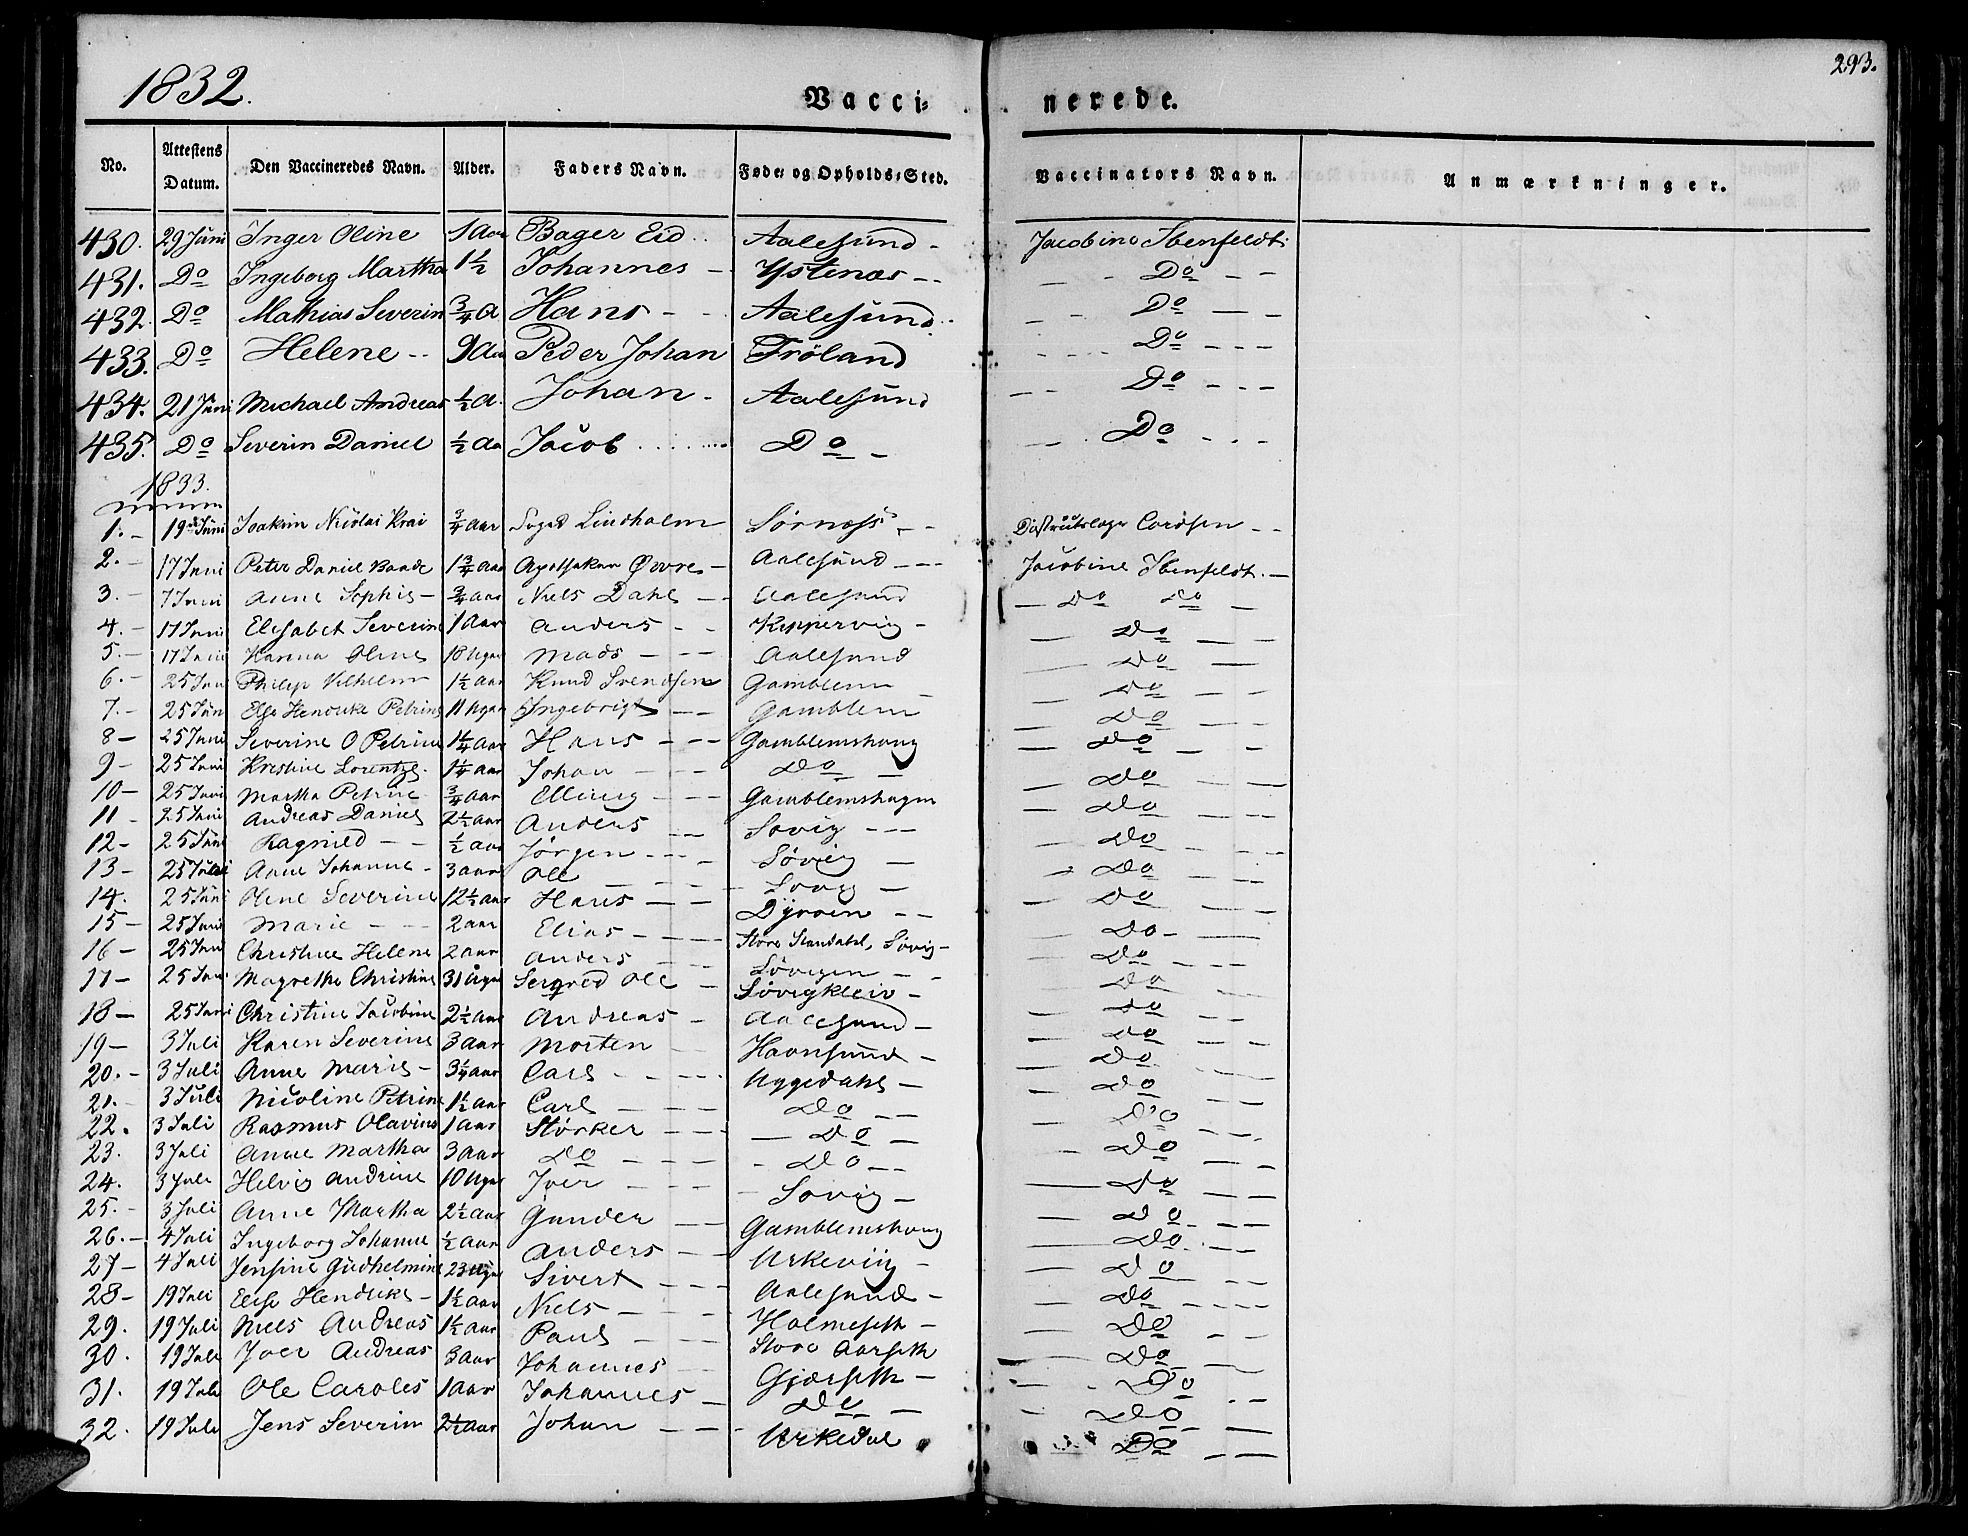 293.
1832.
Vacci- nerede.
No. Attestens Datum. Den Vaccineredes Navn. Alder. Faders Navn. Føde- og Opholds-Sted. Vaccinators Navn. Anmærkninger.
430. 29 Juni Inger Oline 1 Aar Bager Eid Aalesund - Jacobine Ibenfeldt
431. Do Ingeborg Martha 1 1/2 Johannes - Ystenæs -- Do
432. Do Mathias Severin 3/4 a Hans - Aalesund Do
433. Do Helene -- 9 Aar Peder Johan Fröland Do
434. 21 Juni Michael Andreas 1/2 a. Johan - Aalesund Do
435. Do Severin Daniel 1/2 Aa Jacob Do - Do
1833.
1. - 19de Juni Joakim Nicolai Krai 3/4 Aar Lindholm Sörnæss -- Distriktslæge --
2. - 17 Juni Peter Daniel Baade 1 3/4 Aar Apothekar Øwre - Aalesund --- Jacobine Ibenfeldt. -
3. - 7 Juni Anne Sophie - 3/4 aar Niels Dahl -- Aalesund - Do Do -
4. - 17 Juni Elisabet Severine 1 Aar Anders -- Kippervig - Do
5. - 17 Juni Hanna Oline 18 Uger Mads --- Aalesund Do
6. - 25 Juni Philip Vilhelm 1 1/2 Aar Knud Svendsen Gamblem - Do
7. - 25 Juni Else Hendrike Petrine 11 Uger Ingebrigt -- Gamblem Do
8 - 25 Juni Severine O Petrine 1 1/4 Aar Hans --- Gamblemshoug Do
9 - 25 Juni Kristine Lorentze. 1 1/4 Aar Johan --- Do - Do
10 - 25 Juni Martha Petrine 3/4 Aar Elling --- Gamblemshagen Do
11 - 25 Juni Andreas Daniel 2 1/2 Aar Anders -- Sovig --- Do
12 - 25 Juni Ragnild -- 1/2 Aar Jörgen --- Sövig - Do
13 - 25 Juni Anne Johanne - 3 aar Ole --- Sovig - Do
14. 25 Juni Oline Severine 12 1/2 Aar Hans -- Dyröen -- Do
15 - 25 Juni Marie -- 2 aar Elias --- Store Standahl, Sövig - Do -
16 - 25 Juni Christine Helene 2 aar Anders --- Sövigen -- Do
17 - 25 Juni Magrethe Christine 31 Uger Ole - Sövigkleiv - Do
18 - 25 Juni Christine Jacobine 2 1/2 Aar Andreas - Aalesund - Do
19 - 3 Juli Karen Severine 3 Aar Morten -- Havnsund - Do
20. - 3 Juli Anne Marie - 3 1/4 Aar Carl --- Uggedahl - Do
21. - 3 Juli Nicoline Petrine 1 1/2 Aar Carl --- Do -- Do
22. 3 Juli Rasmus Olavius 1 Aar Störker --- - Do - Do
23. 3 Juli Anne Martha 3 Aar Do --- - Do -- Do
24. 3 Juli Helvig Andrine 10 Uger Iver --- Sovig - Do
25. - 3 Juli Anne Martha 2 1/2 Aar Gunder -- Gamblemshoug Do
26. - 4 Juli Ingeborg Johanne 1/2 Aar Anders -- Urkeviig - Do
27 - 4 Juli Jensine Gudhelmine 23 Uger Sivert --- Aalesund - Do
28 - 19 Juli Else Hendrike - 1 1/2 Aar Niels --- Holmeseth - Do
29. 19 Juli Niels Andreas 1 1/2 Aar Paul --- Store Aarseth Do
30. 19 Juli Iver Andreas 3 Aar Johannes -- Gjærseth - Do
31. 19 Juli Ole Caroles 1 Aar Johannes - Do - Do
32. 19 Juli Jens Severin 2 1/2 Aar Johan --- Urkedal Do